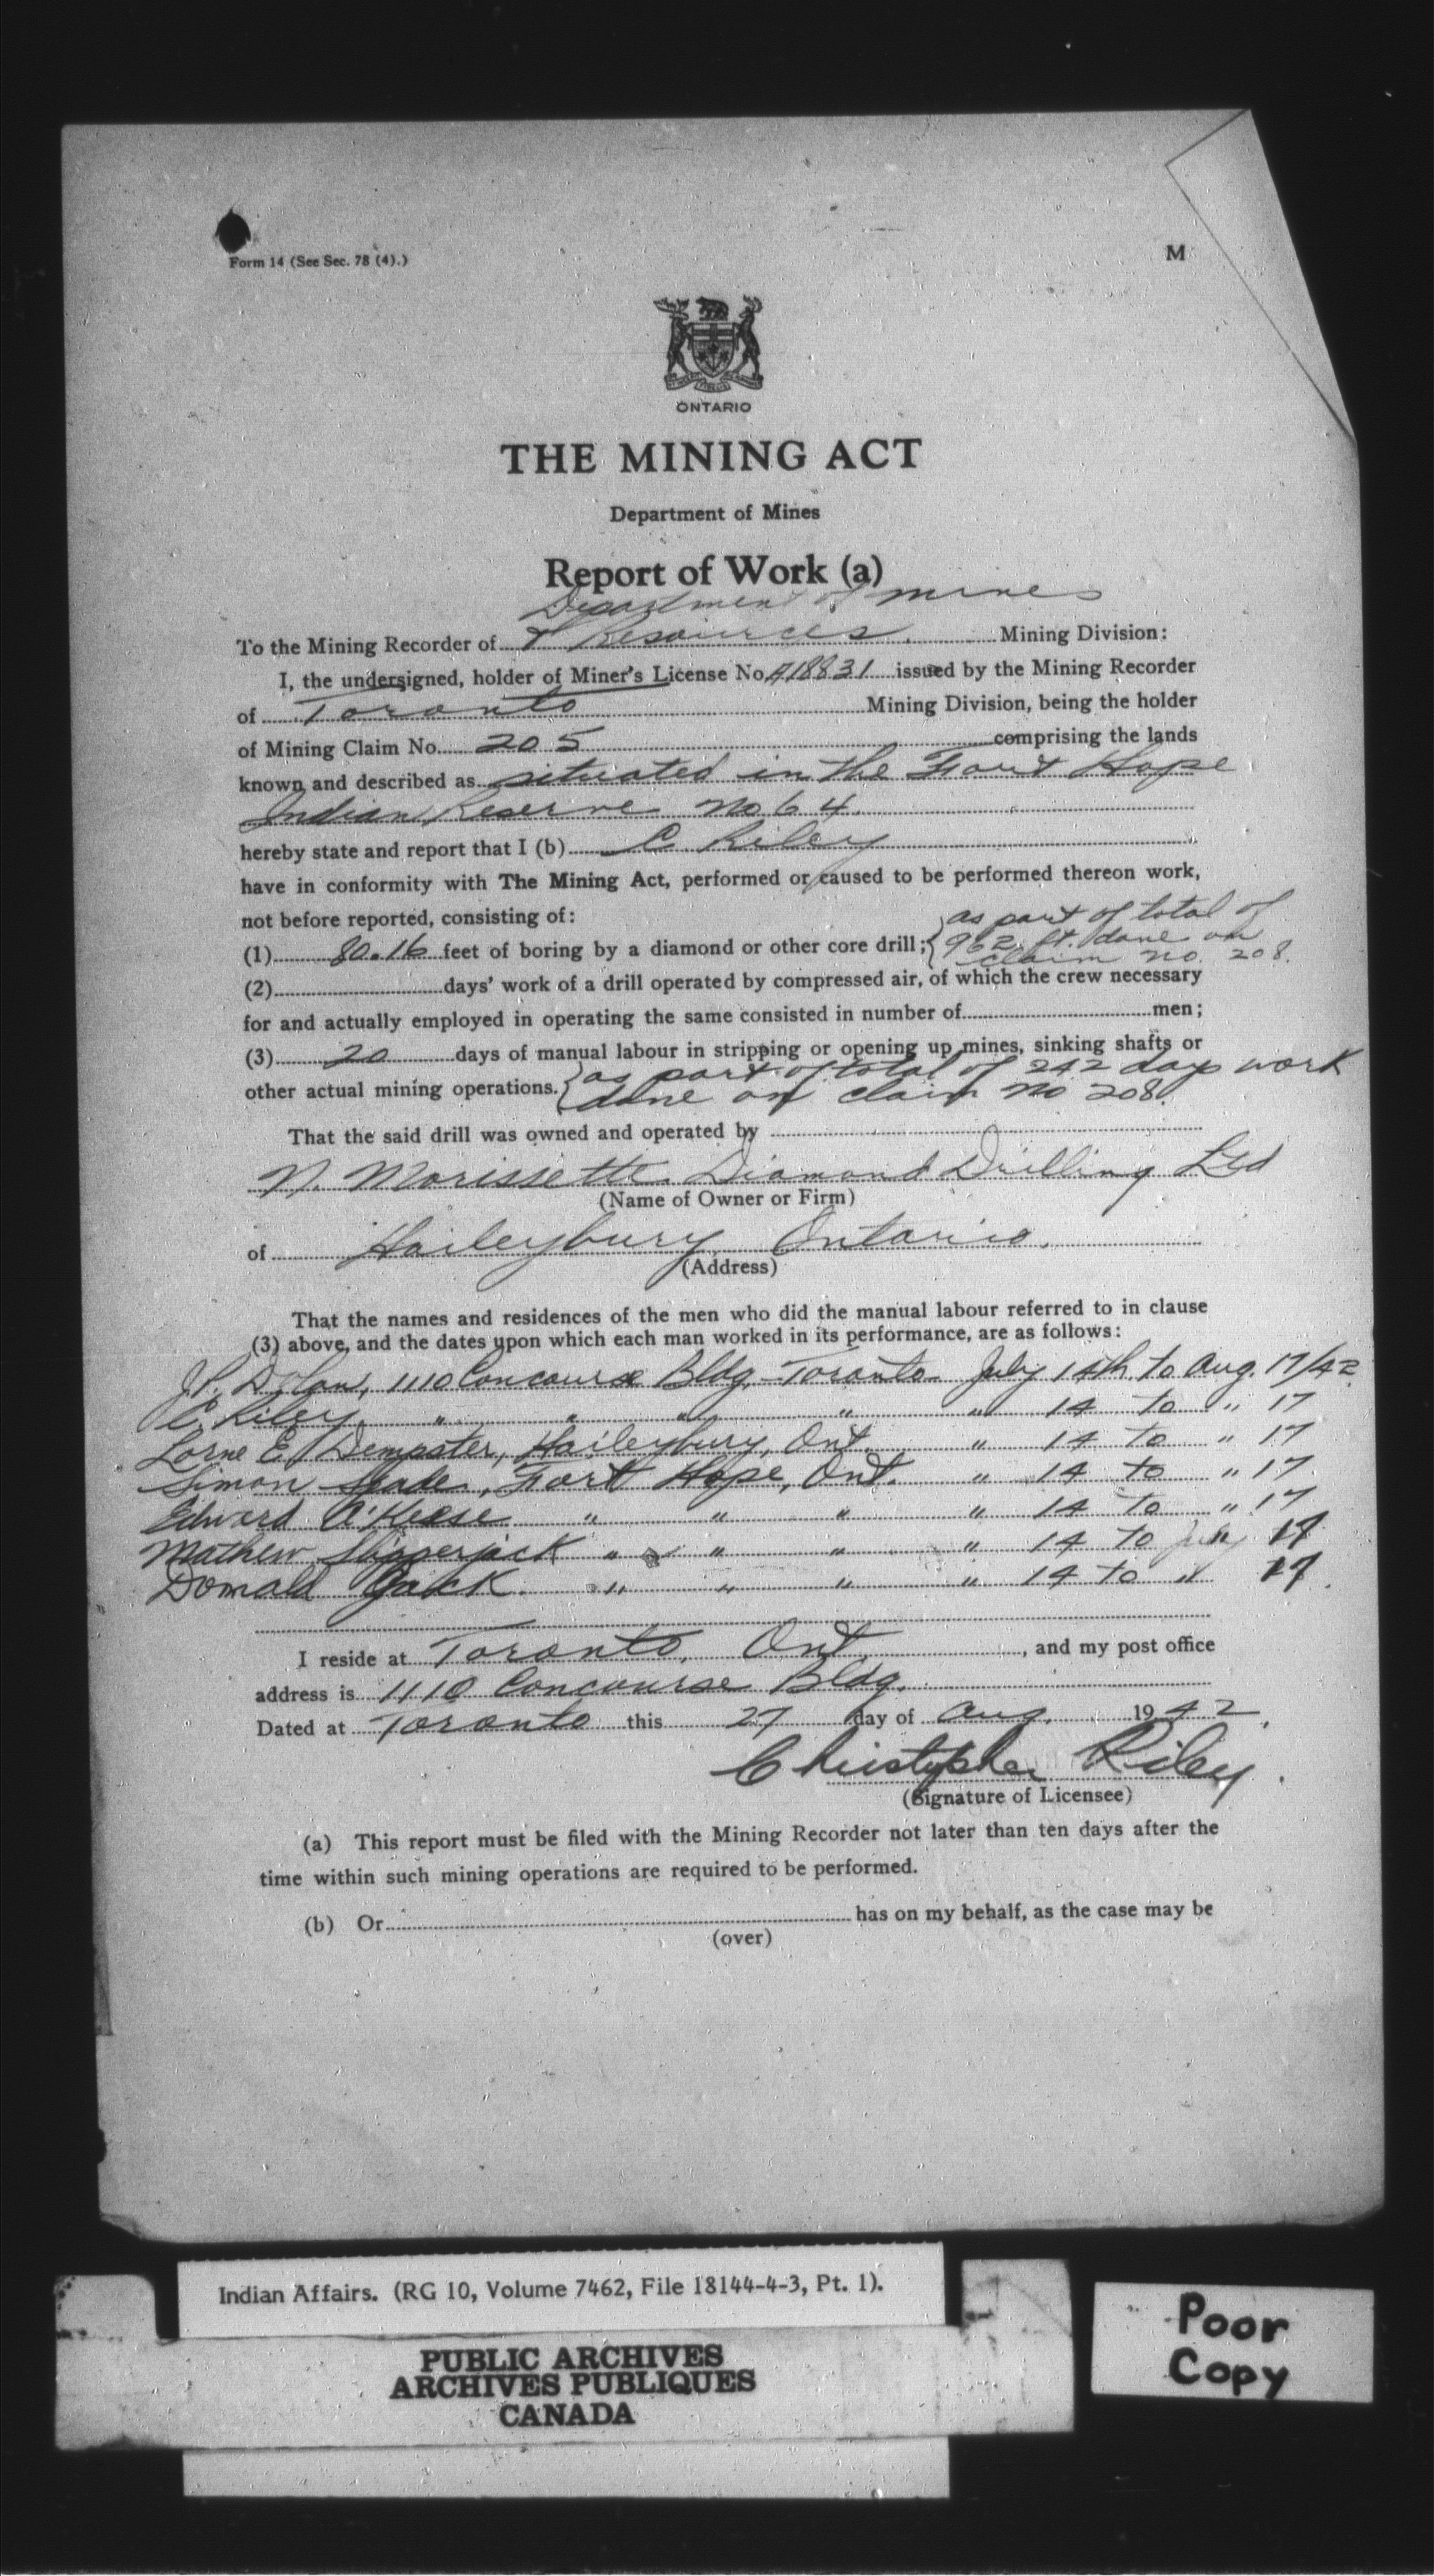 Form 14 (See Sec. 78 (4).)
M
ONTARIO
THE MINING ACT
Department of Mines
Report of Work (a)
Department of mines
To the Mining Recorder of & Resources. Mining Division:
I, the undersigned, holder of Miner's License No. A18831 issued by the Mining Recorder
of Toronto Mining Division, being the holder
of Mining Claim No. 205 comprising the lands
known and described as situated in the Fort Hope
Indian Reserve no 64.
hereby state and report that I (b) C. Riley
have in conformity with The Mining Act, performed or caused to be performed thereon work,
not before reported, consisting of:
as part of total of
(1) 80.16 feet of boring by a diamond or other core drill; 962 ft. done on
claim no. 208.
(2) days' work of a drill operated by compressed air, of which the crew necessary
for and actually employed in operating the same consisted in number of men;
(3) 20 days of manual labour in stripping or opening up mines, sinking shafts or
other actual mining operations. as part of total of 242 days work
done on claim no 208.
That the said drill was owned and operated by
N. Morissette Diamond Drilling Ltd
(Name of Owner or Firm)
of Haileybury Ontario.
(Address)
That the names and residences of the men who did the manual labour referred to in clause
(3) above, and the dates upon which each man worked in its performance, are as follows:
J.P. Dolan, 1110 Concourse Bldg, Toronto July 14th to Aug. 17/42
C. Riley, " " " " " 14 to " 17
Lorne E. Dempster, Haileybury, Ont. " 14 to " 17
Simon Spade, Fort Hope, Ont. " 14 to " 17
Edward O'Keese " " " " 14 to " 17
Mathew Slipperjack " " " " 14 to July
Donald Jack " " " " 14 to "
I reside at Toronto, Ont., and my post office
address is 1110 Concourse Bldg.
Dated at Toronto this 27 day of Aug. 1942.
Christopher Riley.
(Signature of Licensee)
(a) This report must be filed with the Mining Recorder not later than ten days after the
time within such mining operations are required to be performed.
(b) Or has on my behalf, as the case may be
(over)
Indian Affairs. (RG 10, Volume 7462, File 18144-4-3, Pt. 1).
PUBLIC ARCHIVES
ARCHIVES PUBLIQUES
CANADA
Poor
Copy